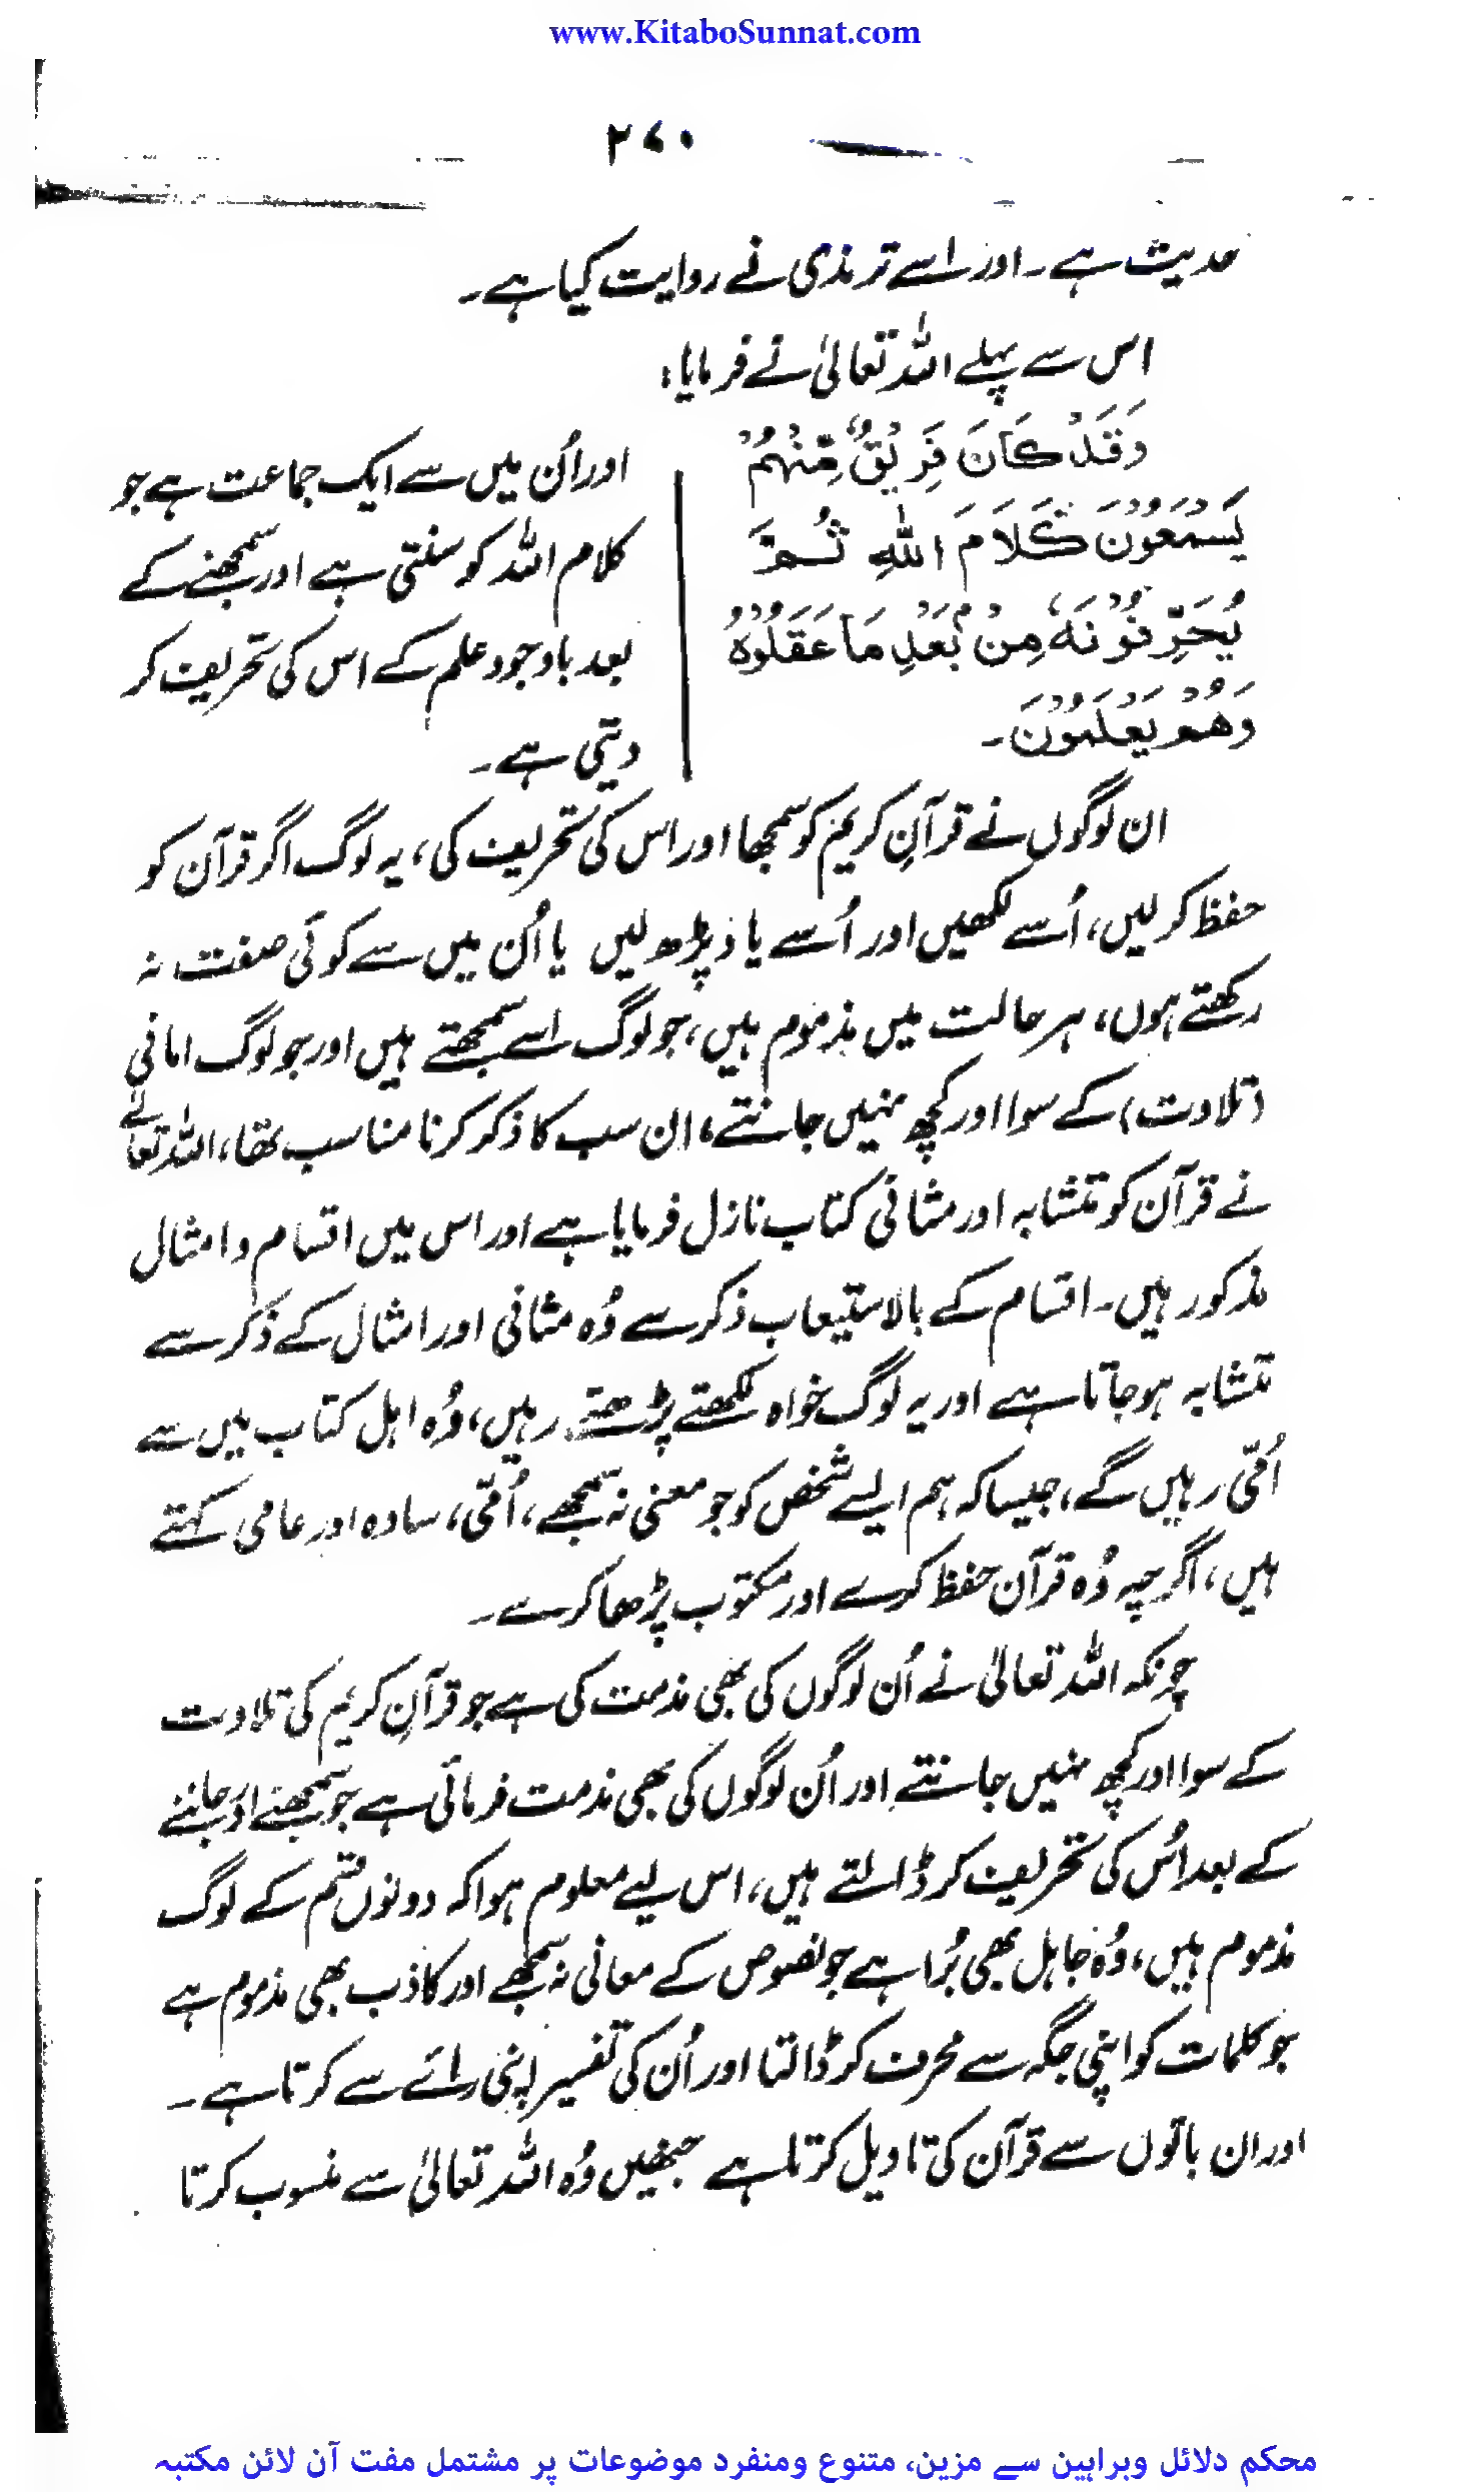 www.KitaboSunnat.com
۲۷۰
حدیث ہے۔ اور اسے ترمذی نے روایت کیا ہے۔
اس سے پہلے اللہ تعالیٰ نے فرمایا:
وَقَدْ كَانَ فَرِيْقٌ مِّنْهُمْ
يَسْمَعُوْنَ كَلَامَ اللهِ ثُمَّ
يُحَرِّفُوْنَهٗ مِنْ بَعْدِ مَا عَقَلُوْهُ
وَهُمْ يَعْلَمُوْنَ۔
اور اُن میں سے ایک جماعت ہے جو
کلام اللہ کو سنتی ہے اور سمجھنے کے
بعد باوجود علم کے اس کی تحریف کر
دیتی ہے۔
ان لوگوں نے قرآنِ کریم کو سمجھا اور اس کی تحریف کی، یہ لوگ اگر قرآن کو
حفظ کر لیں، اُسے لکھیں اور اُسے یاد پڑھ لیں یا اُن میں سے کوئی صفت نہ
رکھتے ہوں، ہر حالت میں مذموم ہیں، جو لوگ اسے سمجھتے ہیں اور جو لوگ امانی
(تلاوت) کے سوا اور کچھ نہیں جانتے، ان سب کا ذکر کرنا مناسب تھا، اللہ تعالےٰ
نے قرآن کو متشابہ اور مثانی کتاب نازل فرمایا ہے اور اس میں اقسام و امثال
مذکور ہیں۔ اقسام کے بالاستیعاب ذکر سے وُہ مثانی اور امثال کے ذکر سے
متشابہ ہو جاتا ہے اور یہ لوگ خواہ لکھتے پڑھتے رہیں، وُہ اہل کتاب میں سے
اُمّی رہیں گے، جیسا کہ ہم ایسے شخص کو جو معنی نہ سمجھے، اُمّی، سادہ اور عامی کہتے
ہیں، اگرچہ وُہ قرآن حفظ کرے اور مکتوب پڑھا کرے۔
چونکہ اللہ تعالیٰ نے اُن لوگوں کی بھی مذمت کی ہے جو قرآنِ کریم کی تلاوت
کے سوا اور کچھ نہیں جانتے اور اُن لوگوں کی بھی مذمت فرمائی ہے جو سمجھنے اور جاننے
کے بعد اُس کی تحریف کر ڈالتے ہیں، اس لیے معلوم ہوا کہ دونوں قسم کے لوگ
مذموم ہیں، وُہ جاہل بھی بُرا ہے جو نصوص کے معانی نہ سمجھے اور کاذب بھی مذموم ہے
جو کلمات کو اپنی جگہ سے محرف کر ڈالتا اور اُن کی تفسیر اپنی رائے سے کرتا ہے۔
اور ان باتوں سے قرآن کی تاویل کرتا ہے جنھیں وُہ اللہ تعالیٰ سے منسوب کرتا
محکم دلائل وبراہین سے مزین، متنوع ومنفرد موضوعات پر مشتمل مفت آن لائن مکتبہ